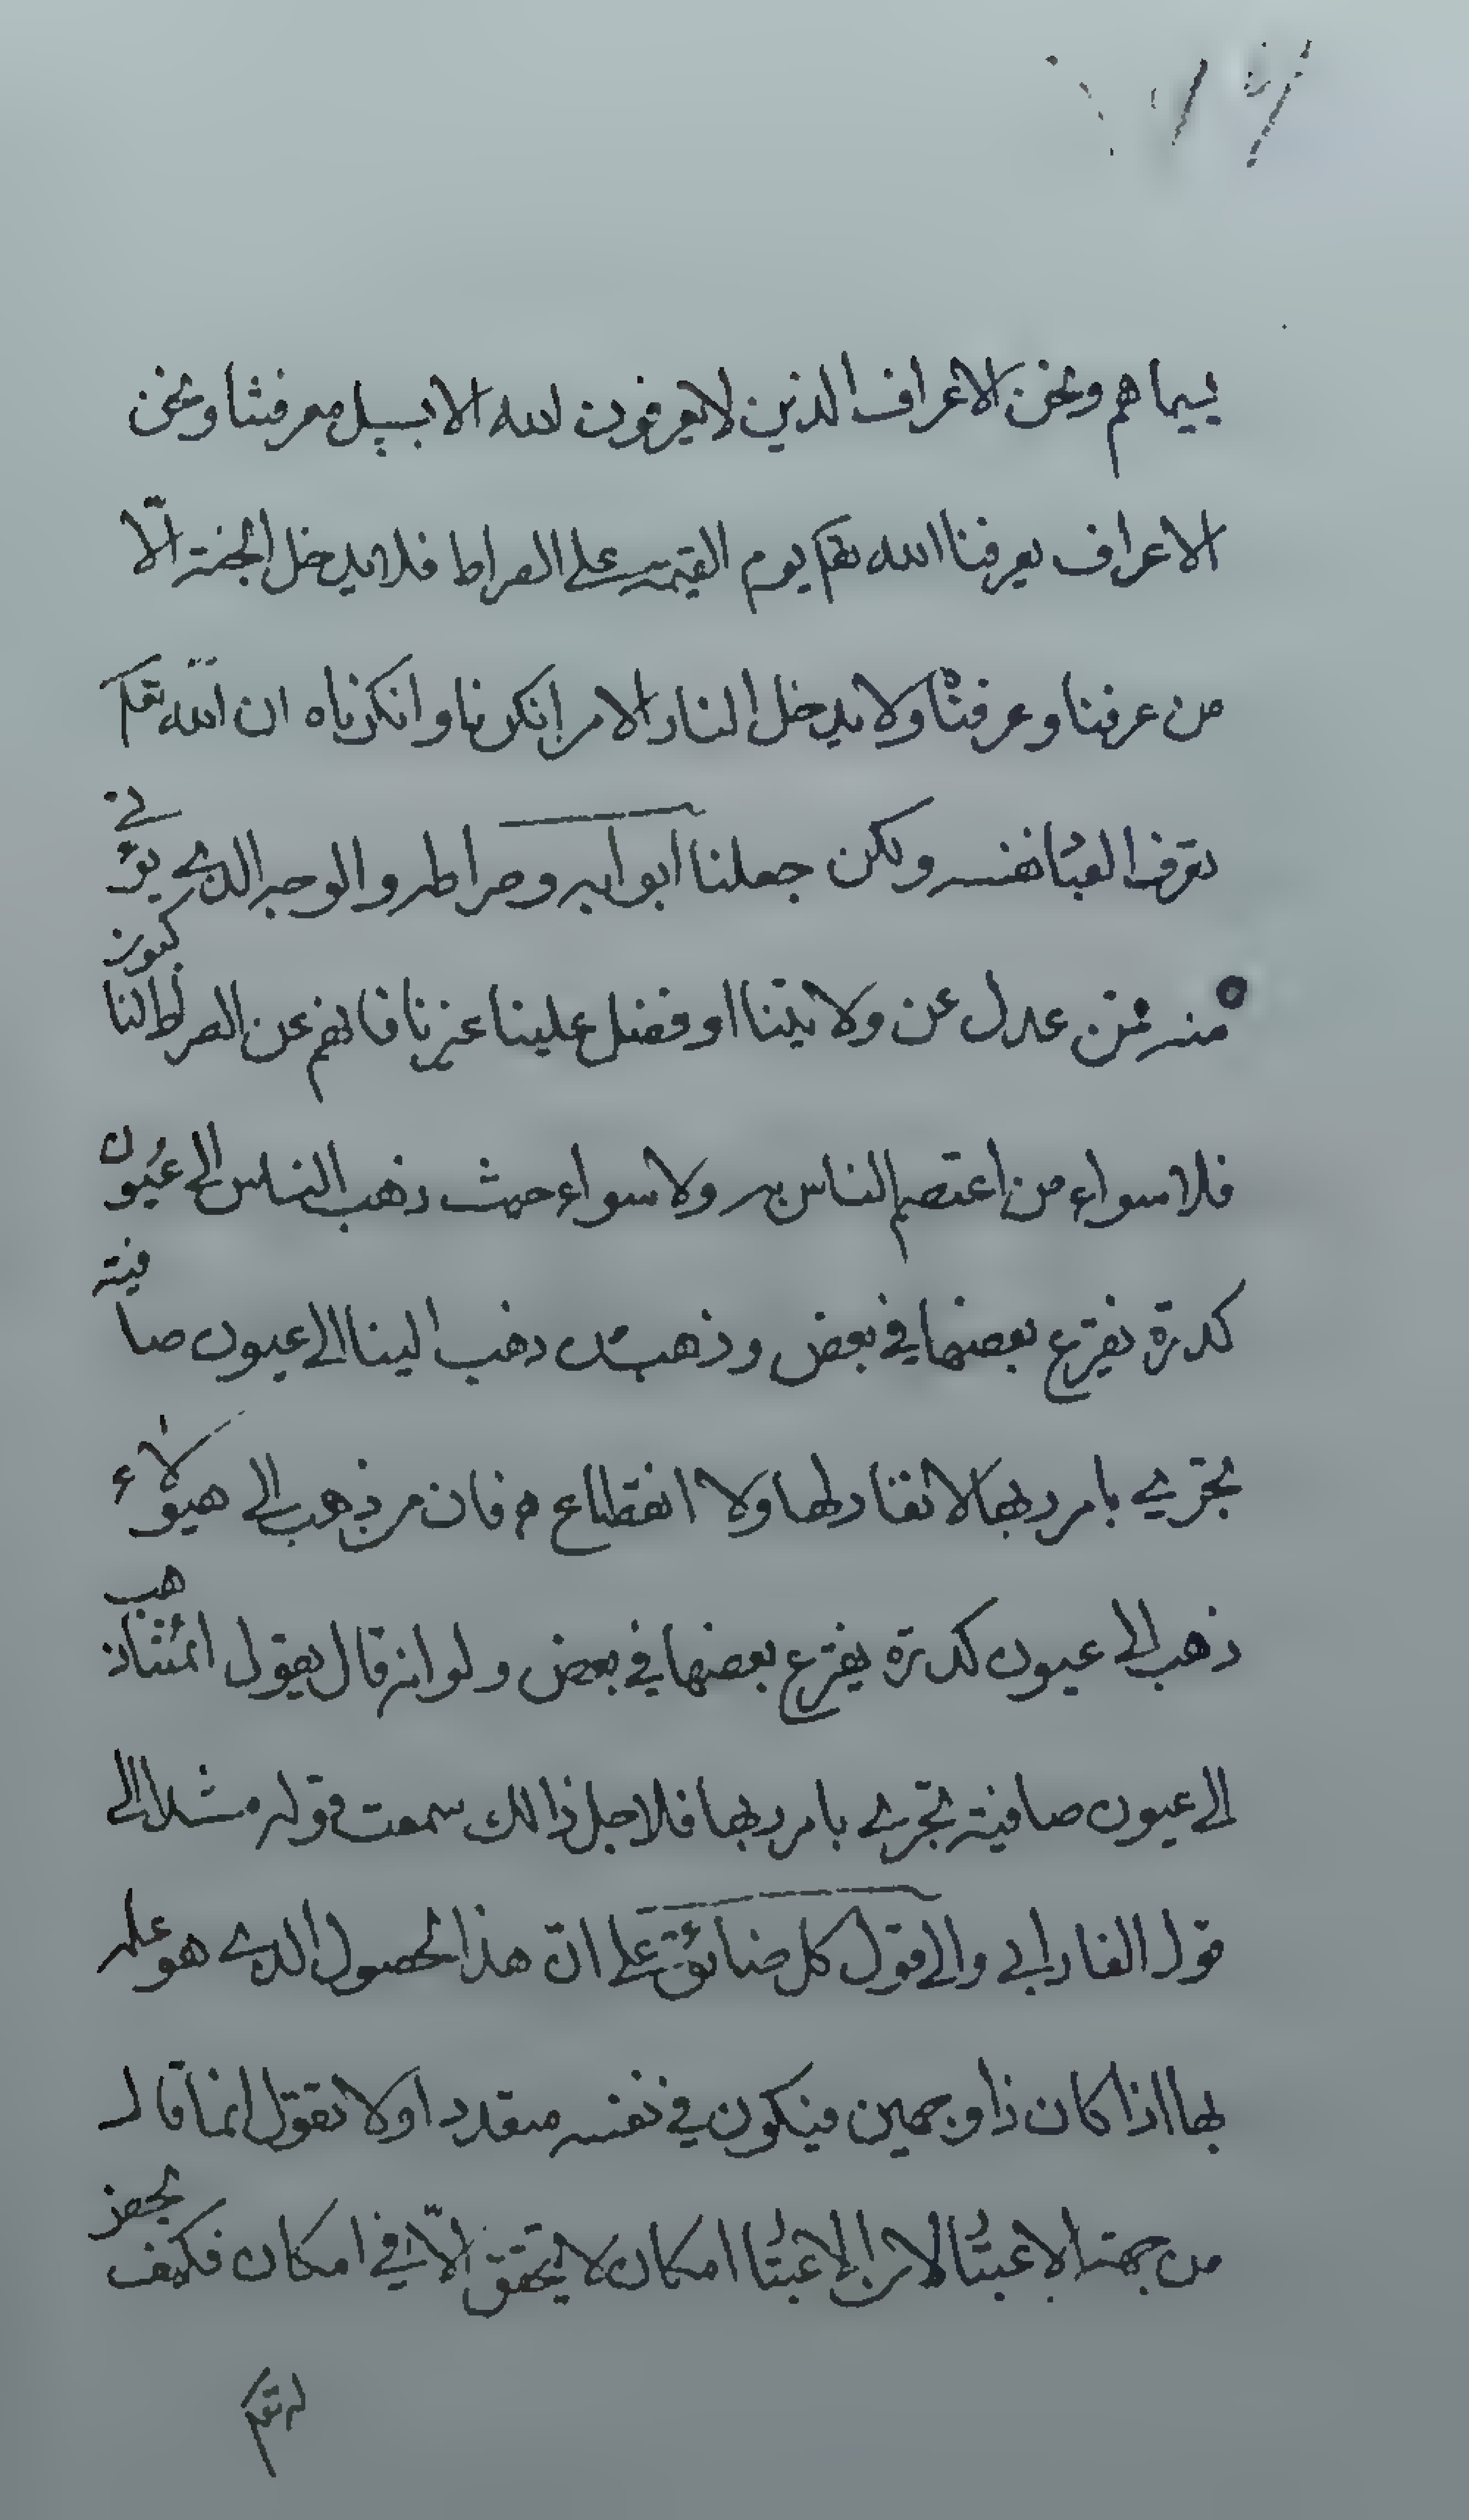 بسيماهم ونحن الاعراف الذين لا يعرفون الله الا بسبيل معرفتنا ونحن
الاعراف يعرفنا الله تعم يوم القيمة على الصراط فلا يدخل الجنة الّا
من عرفنا وعرفناه ولا يدخل النار الا من انكرنا وانكرناه ان الله تعم
يعرف العباد نفسه ولكن جعلنا ابوابه وصراطه والوجه الذي يؤتى
منه فمن عدل عن ولايتنا او فضل علينا غيرنا فانهم عن الصراط لناكبون
فلا سواء من اعتصم الناس به ولا سواء حيث ذهب الناس الى عيون
كدرة يفرع بعضها في بعض وذهب من ذهب الينا الى عيون صافية
تجري بامر ربها لا نفاد لها ولا انقطاع م فان من ذهب الى هيولاء
ذهب الى عيون كدرة يفرع بعضها في بعض ولو انه قال بقول ائمتنا ذهب
الى عيون صافية تجري بامر ربها فلاجل ذالك سمعت قوله مثلا الى
قول الفارابي والى قول كل ضائق على انّ هذا الحصول الذي هو علمه
بها اذا كان ذا وجهين فيكون في نفسه متعددا ولا تقول انما قال
من جهة الاعتبار لان الاعتبار امكان لا يتحقق الّا في امكان فكيف
له تعم